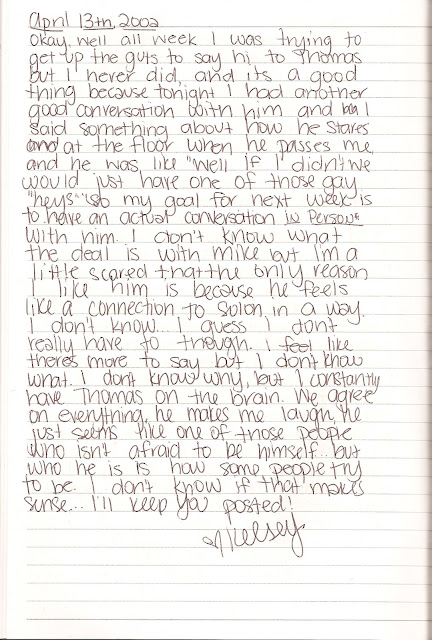 April 13th, 2002
Okay, well all week I was trying to
get up the guts to say hi to Thomas
but I never did, and its a good
thing because tonight I had another
good conversation with him and I
said something about how he stares
at the floor when he passes me
and he was like "well if I didn't we
would just have one of those gay
"heys"" so my goal for next week is
to have an actual conversation in person*
with him. I don't know what
the deal is with mike but I'm a
little scared that the only reason
I like him is because he feels
like a connection to Solon, in a way.
I don't know... I guess I don't
really have to though. I feel like
there's more to say but I don't know
what. I don't know why, but I constantly
have Thomas on the brain. We agree
on everything, he makes me laugh, he
just seems like one of those people
who isn't afraid to be himself.. but
who he is is how some people try
to be. I don't know if that makes
sense... I'll keep you posted!
♡Kelsey